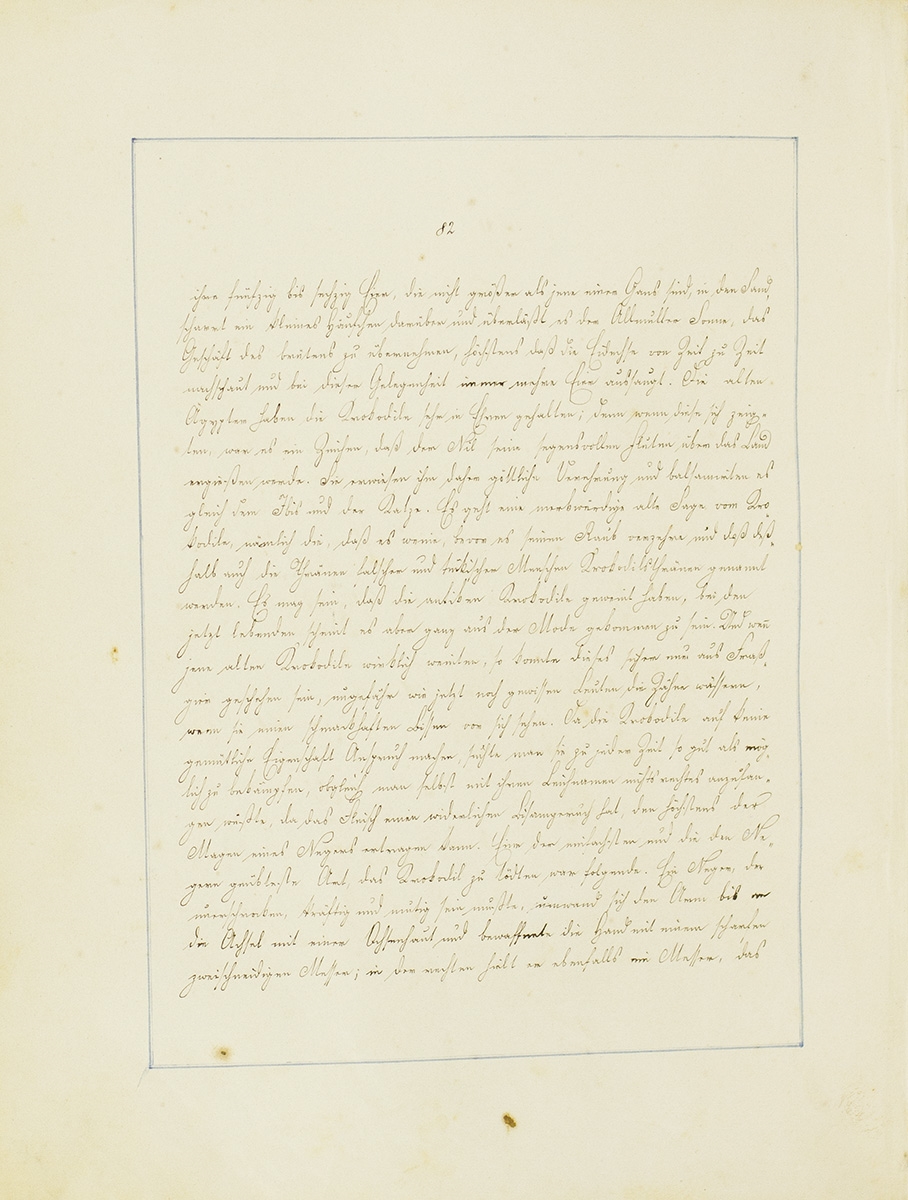 82
ihre fünfzig bis sechzig Eier, die nicht größer als jene einer Gans sind, in den Sand,
scharrt ein kleines Häufchen darüber und überläßt es der Allmutter Sonne, das
Geschäft des brütens zu übernehmen, höchstens daß die Eidechse von Zeit zu Zeit
nachschaut und bei dieser Gelegenheit immer mehre Eier aussaugt. Die alten
Ägypter haben die Krokodile sehr in Ehren gehalten; denn wenn diese sich zeig-
ten, war es ein Zeichen, daß der Nil seine segensvollen Fluten über das Land
ergießen werde. Sie erwiesen ihm daher göttliche Verehrung und balsamirten es
gleich dem Ibis und der Katze. Es geht eine merkwürdige alte Sage vom Kro-
kodile, nämlich die, daß es weine, bevor es seinen Raub verzehre und daß deß-
halb auch die Thränen falscher und tückischer Menschen Krokodilsthränen genannt
werden. Es mag sein, daß die antiken Krokodile geweint haben, bei den
jetzt lebenden scheint es aber ganz aus der Mode gekommen zu sein. Und wenn
jene alten Krokodile wirklich weinten, so konnte dieses sicher nur aus Fraß-
gier geschehen sein, ungefähr wie jetzt noch gewissen Leuten die Zähne wässern,
wenn sie einen schmackhaften Bissen vor sich sehen. Da die Krokodile auf keine
gemütliche Eigenschaft Anspruch machen, suchte man sie zu jeder Zeit so gut als mög-
lich zu bekämpfen, obgleich man selbst mit ihren Leichnamen nichts rechtes anzufan-
gen wußte, da das Fleisch einen widerlichen Bisamgeruch hat, den höchstens der
Magen eines Negers ertragen kann. Eine der einfachsten und die den Ne-
gern geübteste Art, das Krokodil zu tödten war folgende. Ein Neger, der
unerschrocken, kräftig und mutig sein mußte, umwand sich den Arm bis an
die Achsel mit einer Ochsenhaut und bewaffnete die Hand mit einem scharfen
zweischneidigen Messer; in der rechten hielt er ebenfalls ein Messer, das